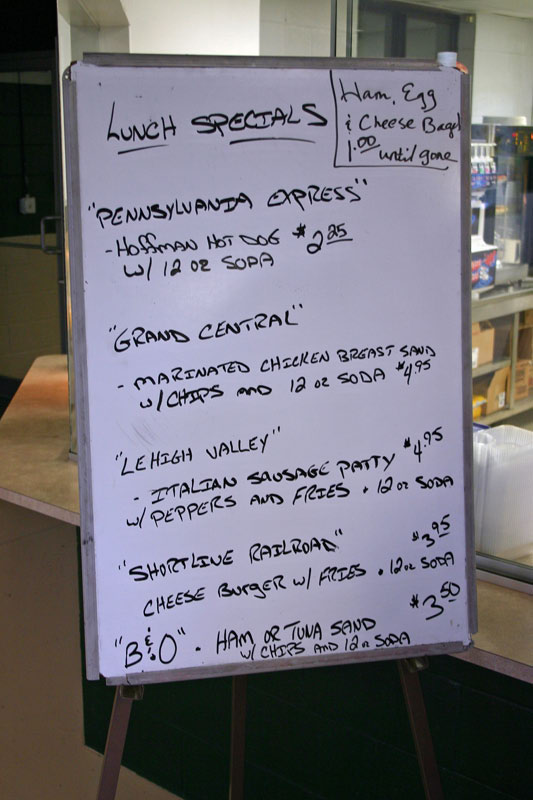 LUNCH SPECIALS
Ham, Egg
& Cheese Bagel
1.00 until gone
"PENNSYLVANIA EXPRESS"
- HOFFMAN HOT DOG $2.25
w/ 12 oz SODA
"GRAND CENTRAL"
- MARINATED CHICKEN BREAST SAND
w/ CHIPS AND 12 oz SODA $4.95
"LEHIGH VALLEY" $4.95
- ITALIAN SAUSAGE PATTY
w/ PEPPERS AND FRIES • 12 oz SODA
"SHORTLINE RAILROAD" $3.95
CHEESE BURGER w/ FRIES • 12 oz SODA
"B&O" • HAM OR TUNA SAND $3.50
w/ CHIPS AND 12 oz SODA